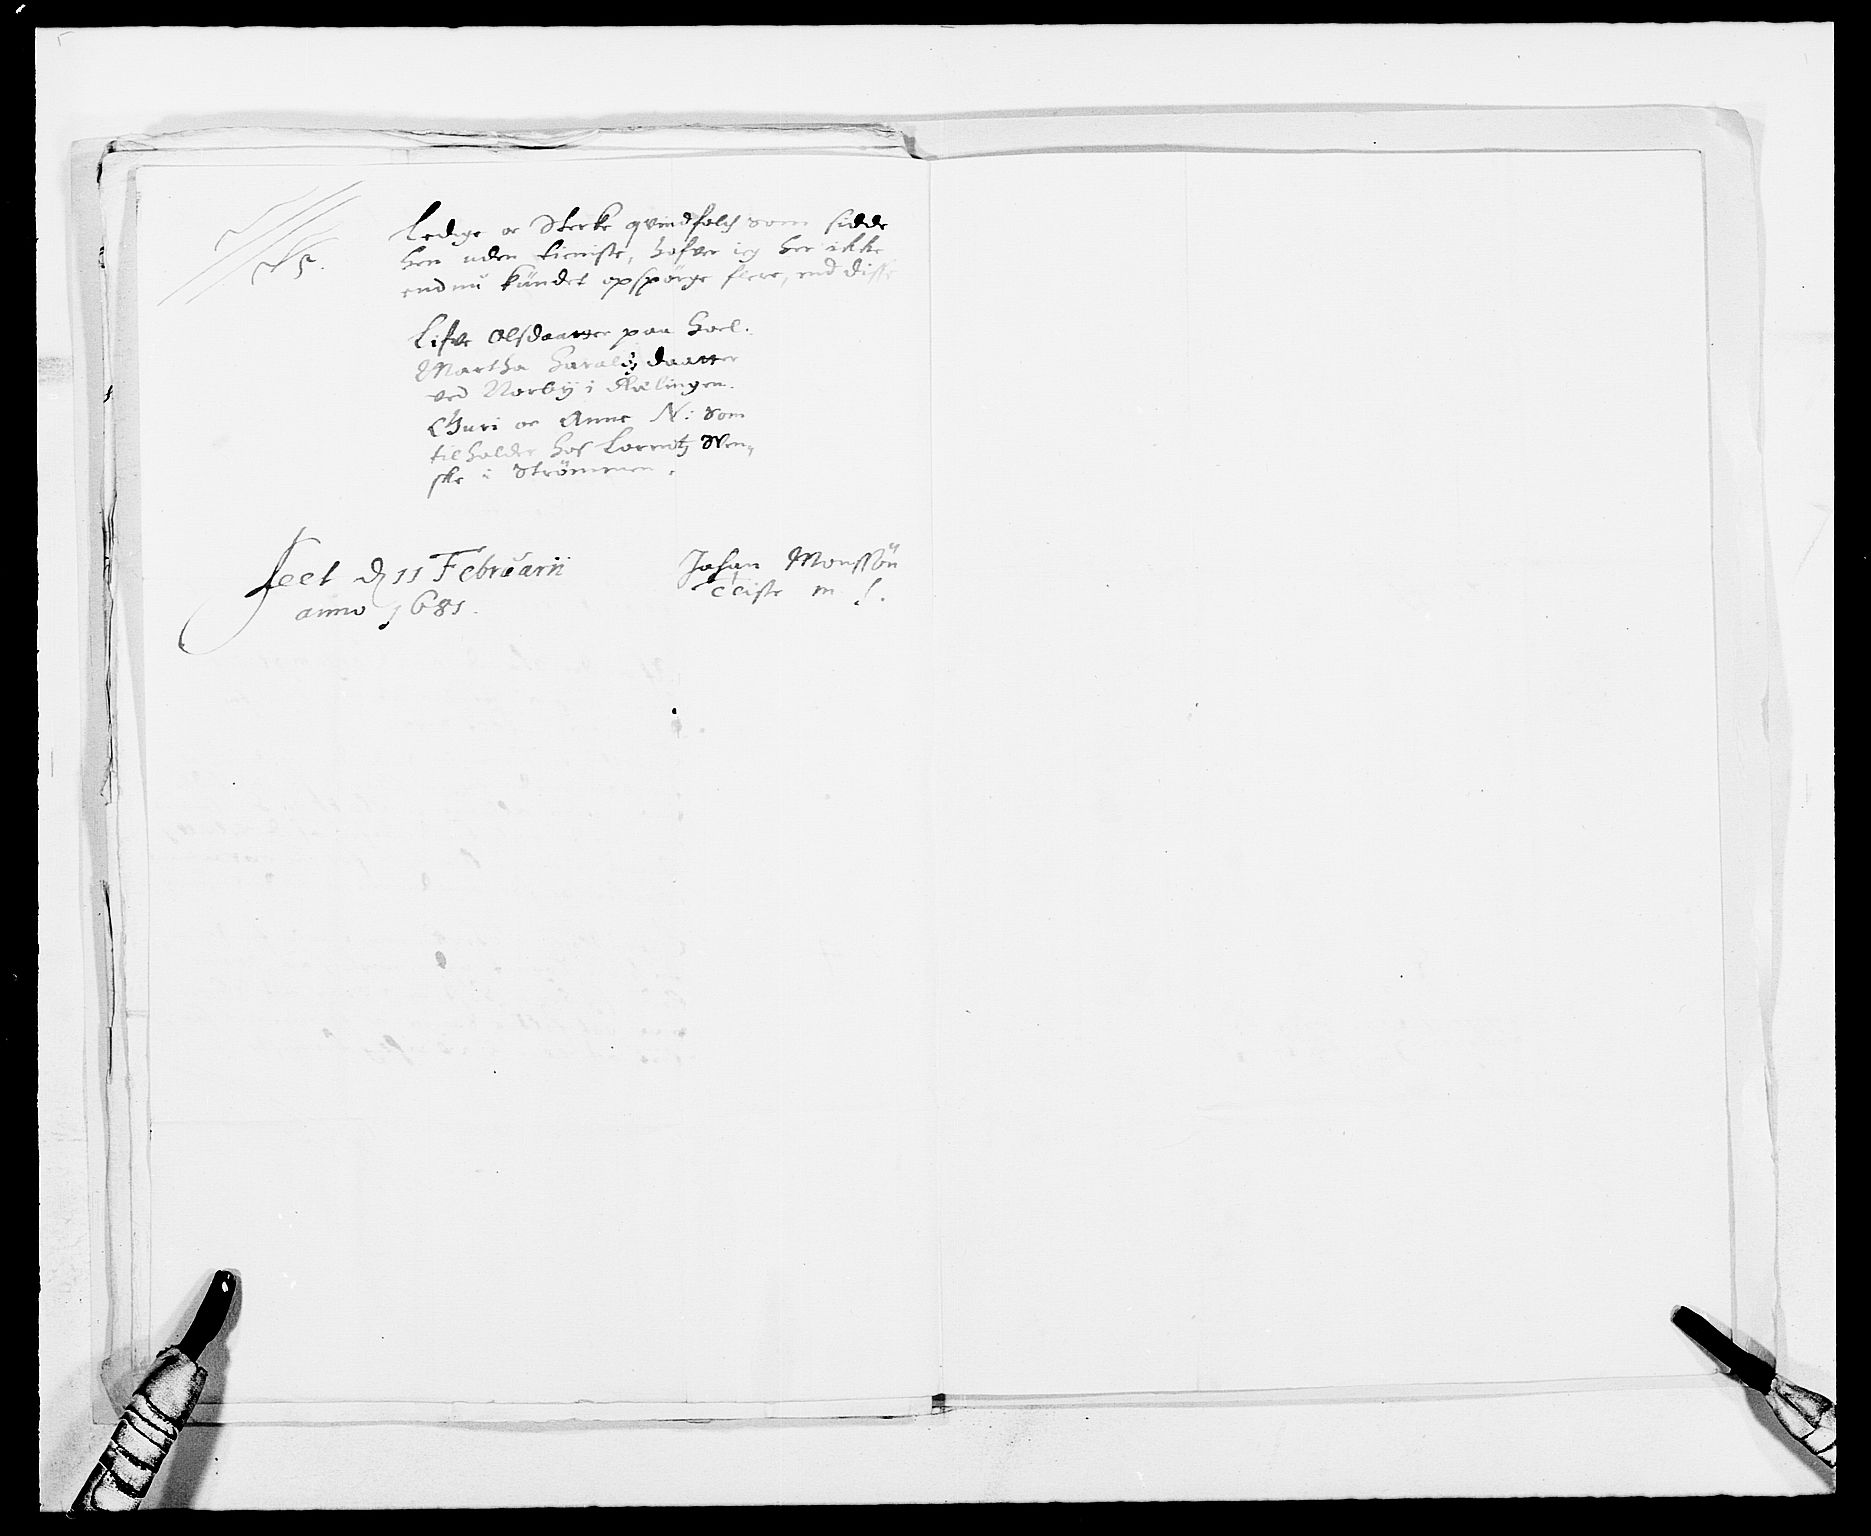 Ledige oc Sterke qvindfolch som sidde
hen uden tieniste, hafver ieg her ikke
endnu kundet opspörge flere, end disse
Lifve Olsdaatter paa Hoel.
Martha Haralds daatter
ved Norby i Rælingen.
Guri oc Anne N: som
tilholder hos Lorentz Sven„
ske i Strömmen.
Feet d 11 Februarii
anno 1681.
Johan Monssön
Teiste m